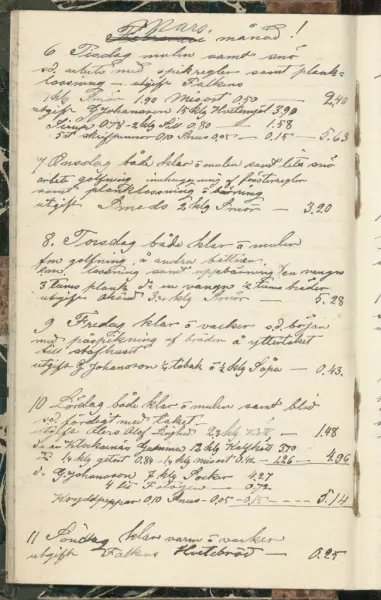 Mars månad!
6 Tisdag mulen samt snö
så arbete med spikregler samt plank=
lossning — utgift Falkens
1 kg Smör 1.90 Misost 0,50 — 2,40
utgift G Johansson 15 kg Hvetemjöl 3,90
Sirup 0,78 - 2 kg Sill 0,80 — 1.58
0,10 Anus 0,05 — 0,15 — 5.63
7 Onsdag både klar o mulen samt lite snö
arbete golfning av fönsterregler
samt planklossning o bärning
utgift Smeds 2 kg Smör — 3,20
8. Torsdag både klar o mulen
fm golfning å andra bottnen
em. lossning samt uppbärning en vagn
3 tums plank o en vagn 2 tums bräder
utgift 3 kg Smör 5.28
9 Fredag klar o vacker så början
med påspikning af bräden å yttertaket
till
utgift G Johansson tobak o ½ kg Såpa — 0,43.
10 Lördag både klar o mulen samt blid
så färdigt med taket.
utgift Olof 2,3 kg — 1.48
12 kg Kalfkött 3.70
1/4 kg getost 0,84 - 1/4 kg misost 0.42 — 1.26 — 4.96
d. G. Johansson 7 kg Socker 4.27
4 0.72
Kryddpeppar 0,10 Anus 0,05 — 0,15 — 5.14
11 Söndag klar varm o vacker
utgift Falkens Hvetebröd — 0.25